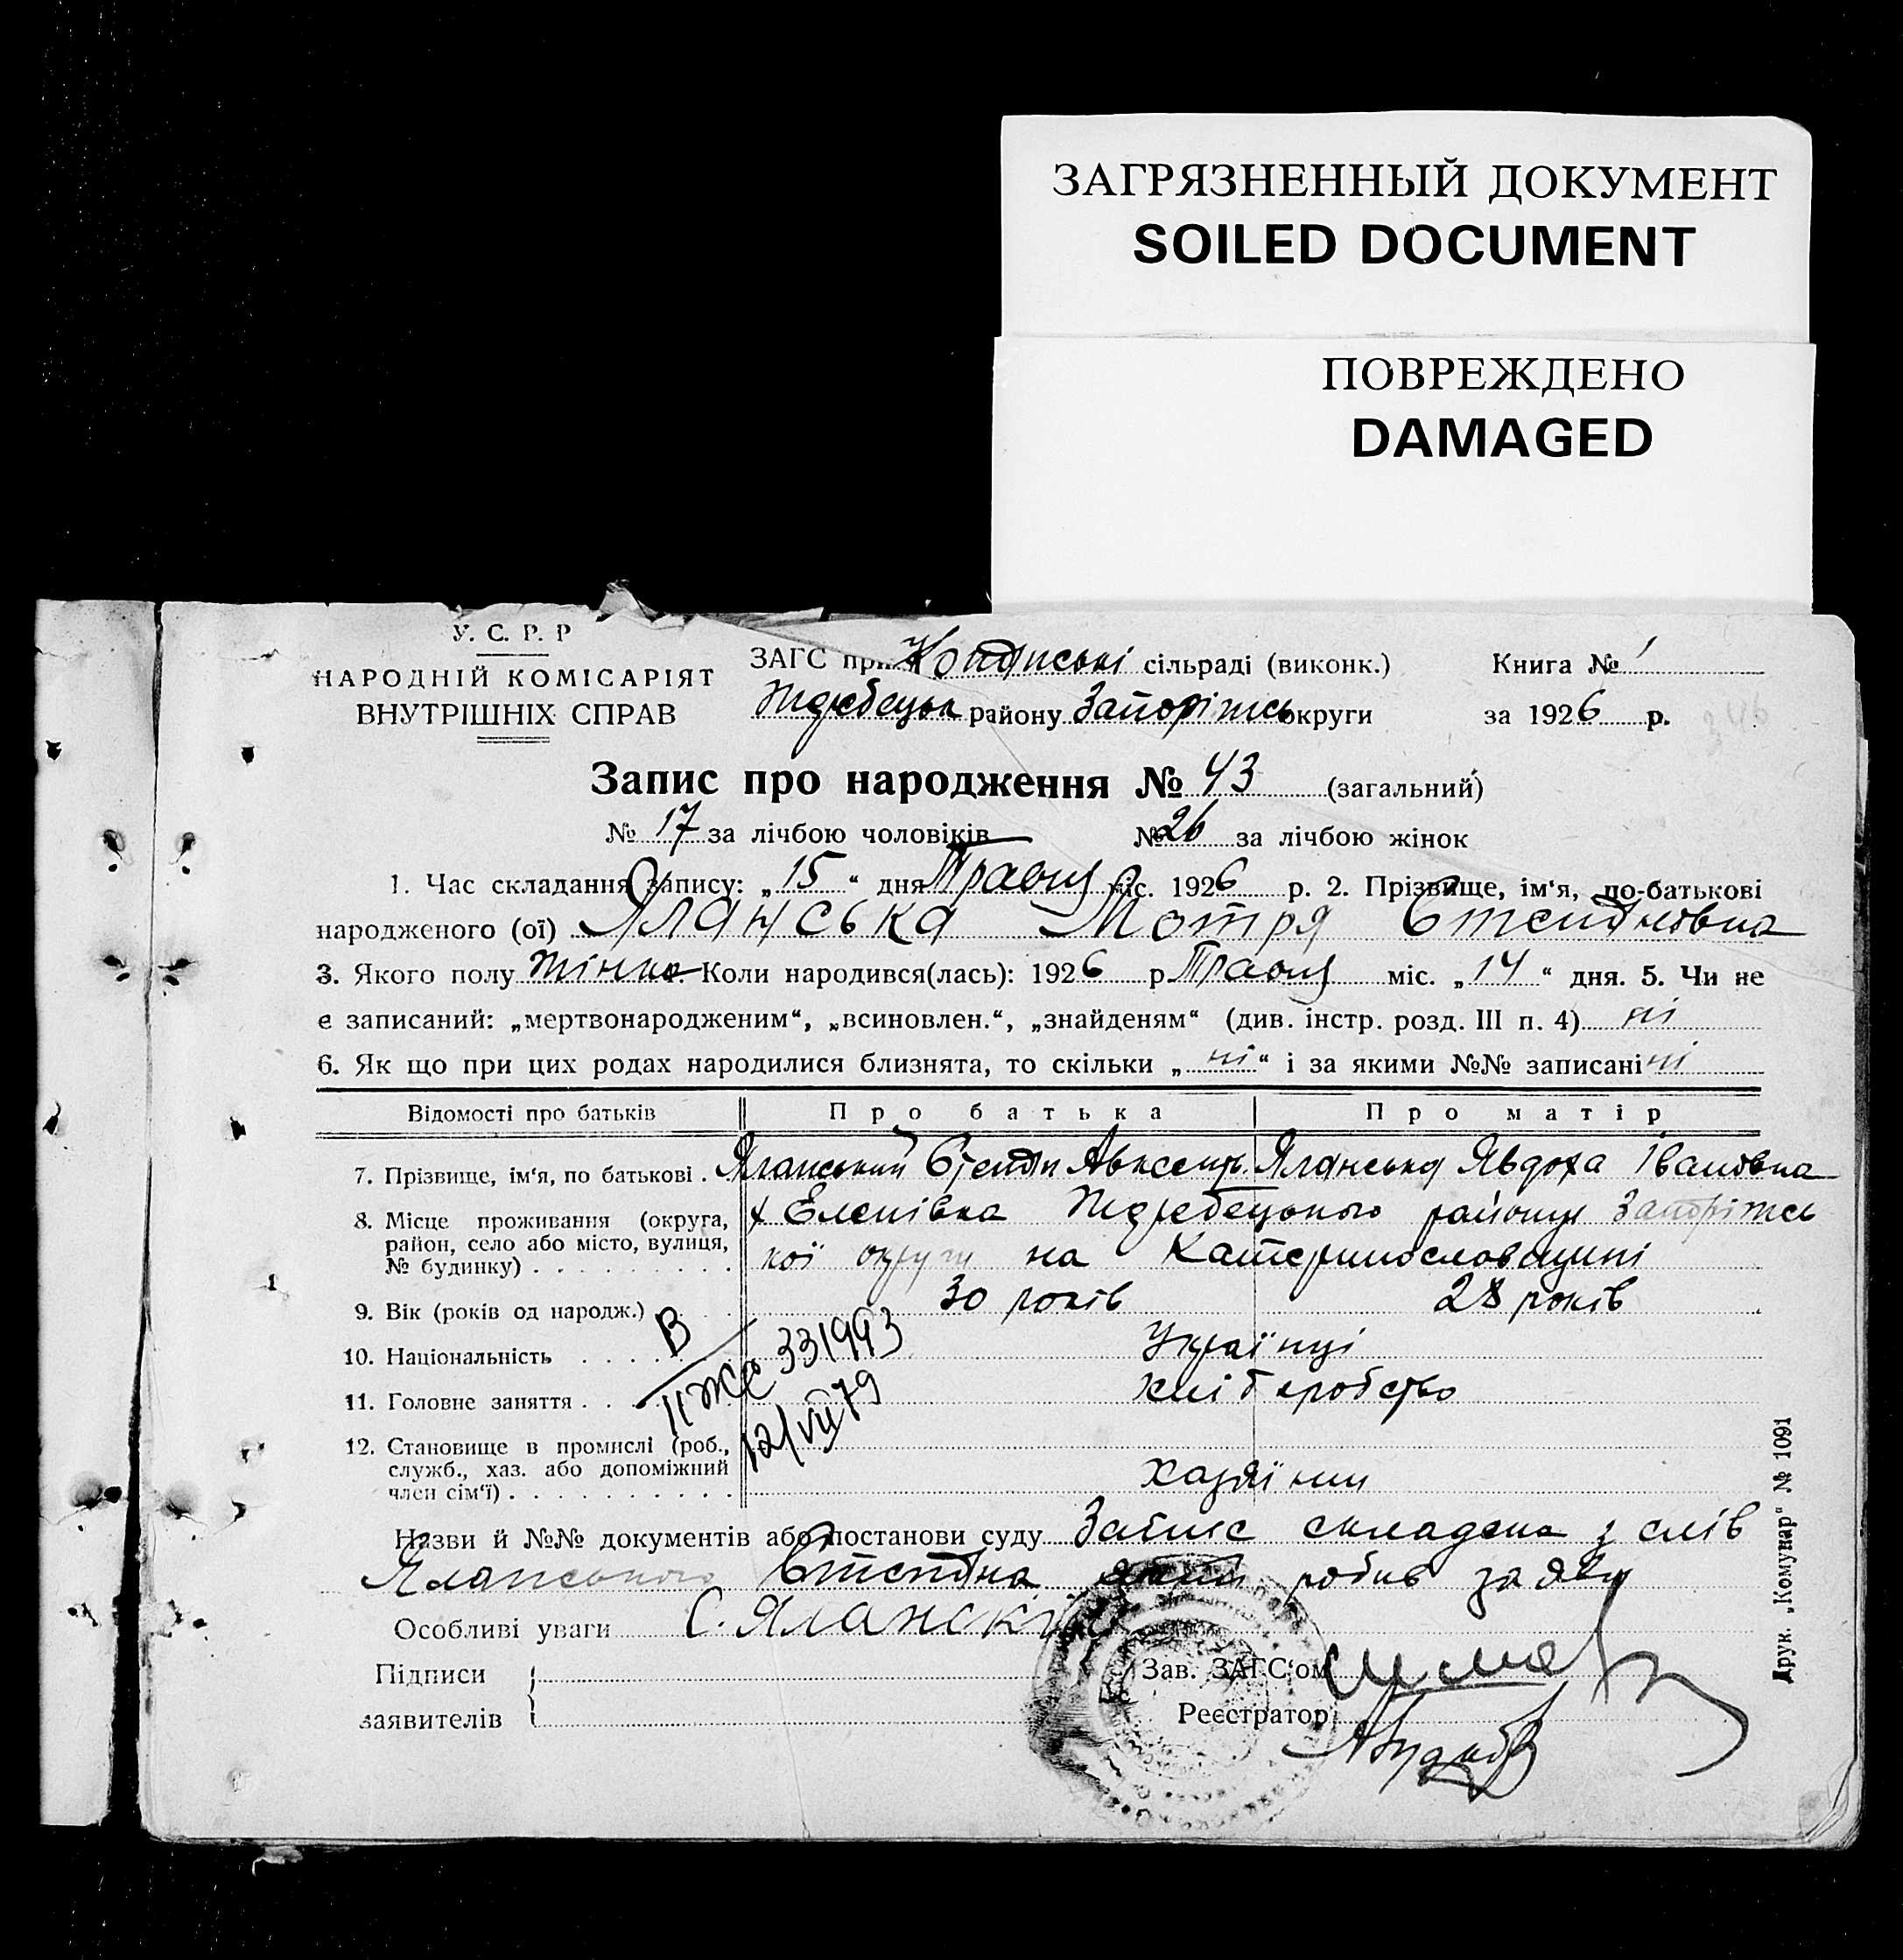 ЗАГРЯЗНЕННЫЙ ДОКУМЕНТ
SOILED DOCUMENT
ПОВРЕЖДЕНО
DAMAGED
У. С. Р. Р
НАРОДНІЙ КОМІСАРІЯТ
ВНУТРІШНІХ СПРАВ
ЗАГС при Копанські сільраді (виконк.) Книга № 1
Жеребецьк району Запоріжсь округи за 1926 р.
Запис про народження № 43 (загальний)
№ 17 за лічбою чоловіків № 26 за лічбою жінок
1. Час складання запису: „15“ дня Травня міс. 1926 р. 2. Прізвище, ім‘я, по-батькові
народженого (ої) Яланська Мотря Степановна
3. Якого полу жіноч. Коли народився(лась): 1926 р. Травня міс. „14“ дня. 5. Чи не
є записаний: „мертвонародженим“, „всиновлен.“, „знайденям“ (див. інстр. розд. III п. 4) ні
6. Як що при цих родах народилися близнята, то скільки „ні“ і за якими №№ записані ні
Відомості про батьків Про батька Про матір
7. Прізвище, ім‘я, по батькові . Яланський Степан Авксент. Яланська Явдоха Івановна
8. Місце проживання (округа, район, село або місто, вулиця, № будинку) х Еленівка Жеребецького району Запоріжсь
кої округи на Катеринославщині
9. Вік (років од народж.) 30 років 28 років
10. Національність Українці
11. Головне заняття хліборобство
12. Становище в промислі (роб., служб., хаз. або допоміжний член сім‘ї) хазяїни
В
II ЖС 331993
12/VII 79
Назви й №№ документів або постанови суду Запис складена з слів
Яланського Степана який робив заяву
Особливі уваги С. Яланскій
Підписи
заявителів
Зав. ЗАГС‘ом
Реєстратор
Друк. „Комунар“ № 1091